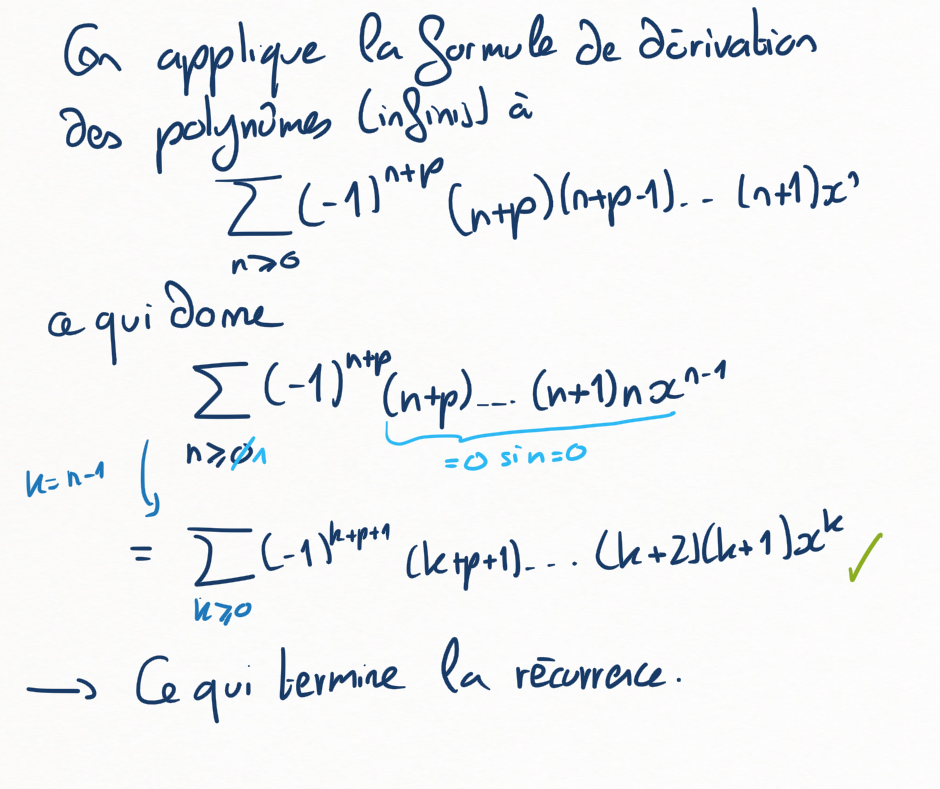 On applique la formule de dérivation
des polynômes (infinis) à
∑ (-1)^{n+p} (n+p)(n+p-1)... (n+1)x^n
n⩾0
ce qui donne
∑ (-1)^{n+p} (n+p).... (n+1)n x^{n-1}
n⩾0̸1
=0 si n=0
k=n-1
= ∑ (-1)^{k+p+1} (k+p+1).... (k+2)(k+1)x^k ✓
k⩾0
→ Ce qui termine la récurrence.